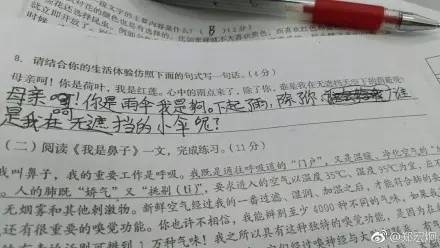 段文字的主要内容是什么？（B）（2分）
8. 请结合你的生活体验仿照下面的句式写一句话。（4分）
母亲呵！你是荷叶，我是红莲。心中的雨点来了，除了你，谁是我在无遮拦天空下的荫蔽呢？
母亲啊！你是雨伞我是狗。下起雨，除你 谁
是我在无遮挡的小伞呢？
（二）阅读《我是鼻子》一文，完成练习。（11分）
我叫鼻子，我的重要工作是呼吸。我既是通往呼吸道的“门户”，又是温暖、净化空气的
人的肺既“娇气”又“挑剔（tī）”，要求进入的空气以温度35℃、湿度95%为宜，
无烟雾和其他刺激物。新鲜空气经过我的一番过滤、湿润、加温之后，才能符合肺的要
还有很重要的嗅觉功能。你也许不相信，我能辨别至少4000种不同的气味。如果
识别到万种气味！我之所以具有这种独特的嗅觉功能，是因为
@郑宏坷